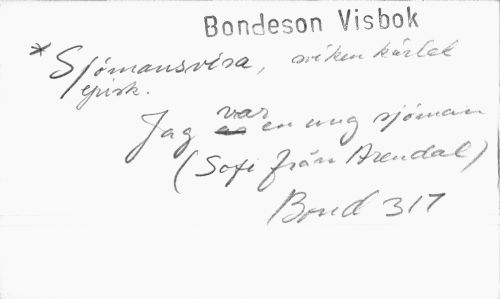 Bondeson Visbok
* Sjömansvisa, sviken kärlek
episk.
Jag var en ung sjöman
(Sofi från Arendal)
Bond 317